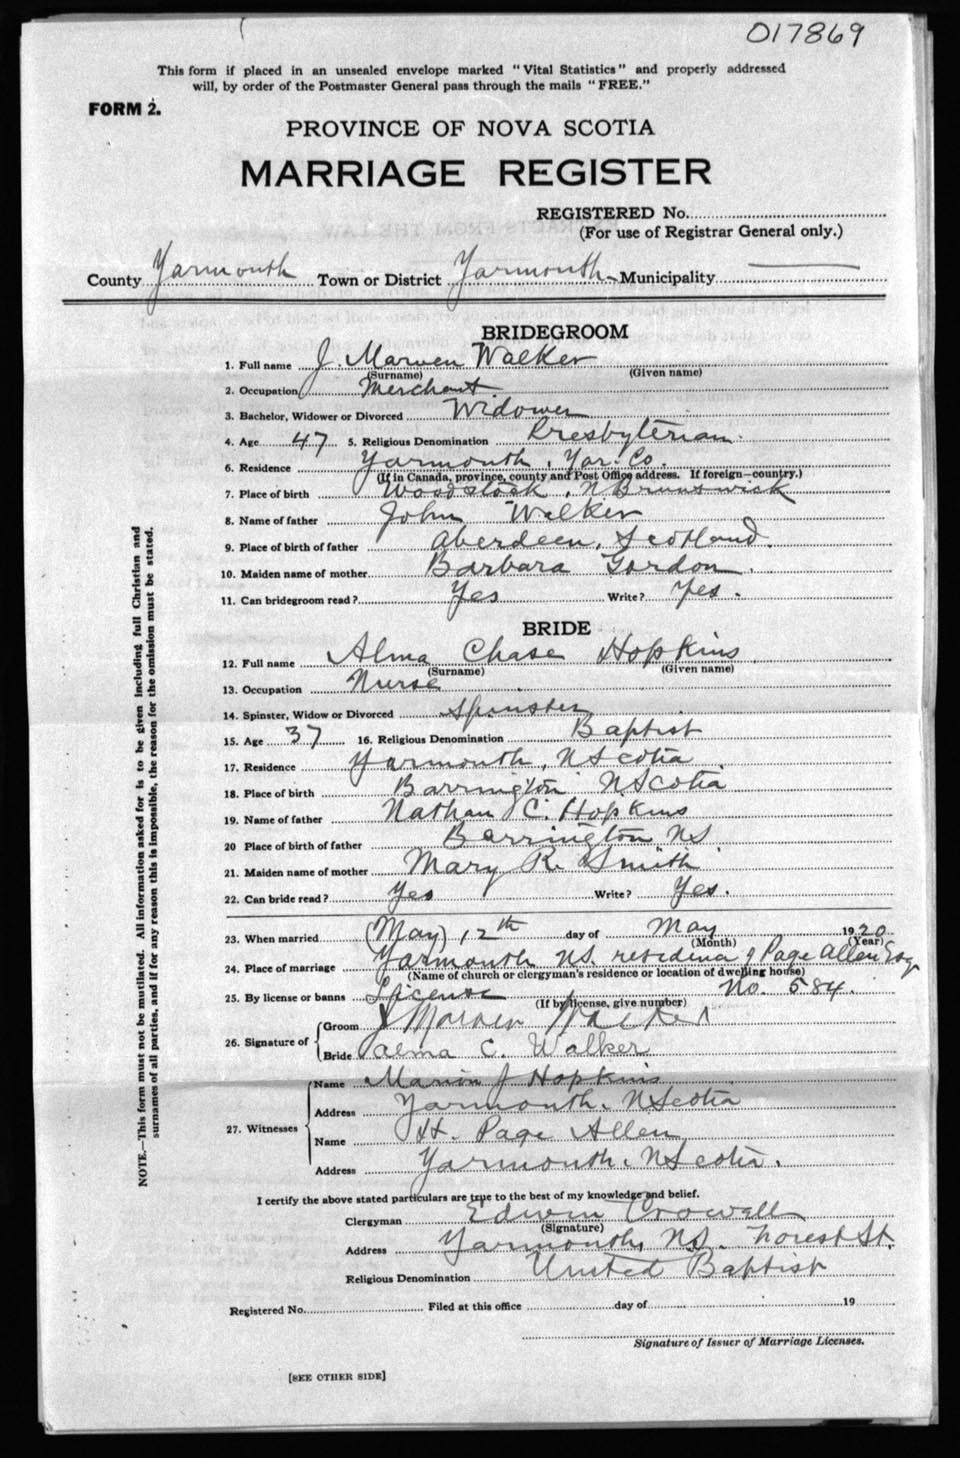 017869
This form if placed in an unsealed envelope marked "Vital Statistics" and properly addressed
will, by order of the Postmaster General pass through the mails "FREE."
FORM 2.
PROVINCE OF NOVA SCOTIA
MARRIAGE REGISTER
REGISTERED No.
(For use of Registrar General only.)
County Yarmouth Town or District Yarmouth Municipality
BRIDEGROOM
1. Full name J. Marven Walker
(Surname) (Given name)
2. Occupation Merchant
3. Bachelor, Widower or Divorced Widower
4. Age 47 5. Religious Denomination Presbyterian.
6. Residence Yarmouth, Yar. Co.
(If in Canada, province, county and Post Office address. If foreign—country.)
7. Place of birth Woodstock, N Brunswick
8. Name of father John Walker
9. Place of birth of father Aberdeen, Scotland.
10. Maiden name of mother Barbara Gordon.
11. Can bridegroom read? Yes Write? Yes.
BRIDE
12. Full name Alma Chase Hopkins
(Surname) (Given name)
13. Occupation Nurse
14. Spinster, Widow or Divorced Spinster
15. Age 37 16. Religious Denomination Baptist
17. Residence Yarmouth, N Scotia
18. Place of birth Barrington N Scotia
19. Name of father Nathan C. Hopkins
20 Place of birth of father Barrington NS
21. Maiden name of mother Mary R. Smith
22. Can bride read? Yes Write? Yes.
23. When married (May) 12th day of May 1920
(Month) (Year)
24. Place of marriage Yarmouth NS. residence of Page Allen Esq
(Name of church or clergyman's residence or location of dwelling house)
25. By license or banns License No. 584.
(If by license, give number)
26. Signature of
Groom J Marven Walker
Bride Alma C. Walker
27. Witnesses
Name Marion J Hopkins
Address Yarmouth, N Scotia
Name H. Page Allen
Address Yarmouth, N Scotia.
I certify the above stated particulars are true to the best of my knowledge and belief.
Clergyman Edwin Crowell
(Signature)
Address Yarmouth, NS. Forest St.
Religious Denomination United Baptist
Registered No. Filed at this office day of 19
Signature of Issuer of Marriage Licenses.
[SEE OTHER SIDE]
NOTE.—This form must not be mutilated. All information asked for is to be given including full Christian and
surnames of all parties, and if for any reason this is impossible, the reason for the omission must be stated.